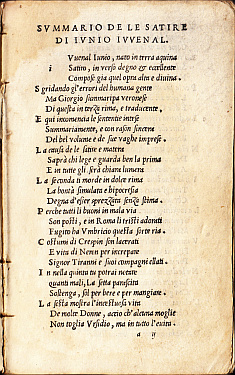 SVMMARIO DE LE SATIRE
DI IVNIO IVVENAL.
Vuenal Iunio, nato in terra aquina
i Satiro, in verso degno & eccellente
Compose gia quel opra alta e diuina.
S gridando gl'errori del humana gente
Ma Giorgio summaripa veronese
Di questa in terza rima, e traducente,
E qui incomencia le sententie intese
Summariamente, e con rason sincera
Del bel volume e de sue vaghe imprese.
L a causa de le satire e matera
Saprà chi lege e guarda ben la prima
E in tutte gli serà chiara lumera
L a seconda ti morde in dolce rima
La bontà simulata e hipocresia
Degna d'esser sprezzata senza stima.
P erche tutti li buoni in mala via
Son posti, e in Roma li tristi adorati
Fugito ha Vmbricio questa sorte ria.
C ostumi di Crespin son lacerati
E vita di Neron per increpare
Signor Tiranni e suoi compagni ellati.
I n la quinta tu potrai notare
quanti mali, La setta parasita
Sostenga, sol per bere e per mangiare.
L a sesta mostra l'incestuosa vita
De molte Donne, acciò ch'alcuna moglie
Non toglia Vrsidio, ma in tutto l'euita.
a ij